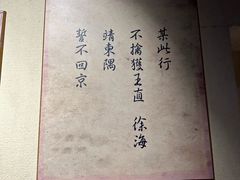 某此行
不擒獲王直 徐海
靖東隅
誓不回京